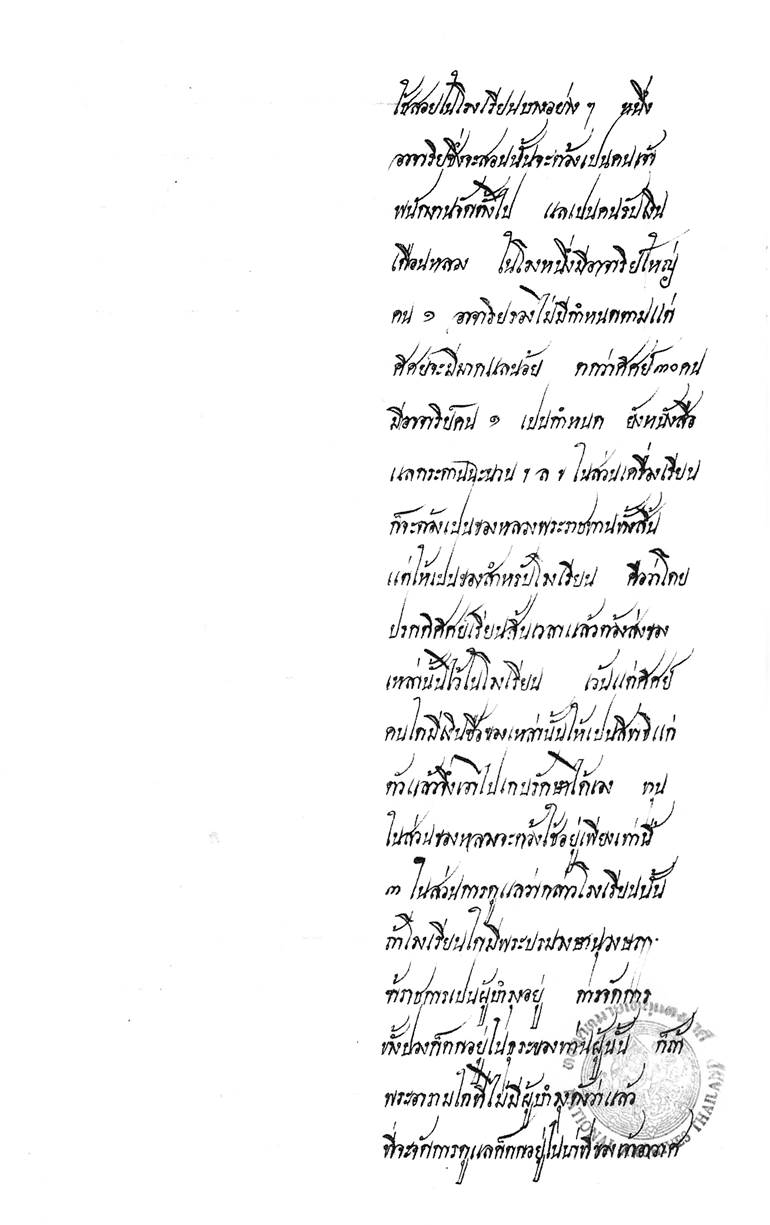 ใช้สอยในโรงเรียนบางอย่าง ๆ หนึ่ง
อาจาริยซึ่งจะสอนนั้นจะต้องเปนคนเจ้า
พนักงานจัดตั้งไป แลเปนคนรับเงิน
เดือนหลวง ในโรงหนึ่งมีอาจาริยใหญ่
คน ๑ อาจาริยรองไม่มีกำหนดตามแต่
ศิศย์จะมีมากแลน้อย คกว่าศิศย์ ๓๐ คน
มีอาจาริย์คน ๑ เปนกำหนด ยังหนังสือ
แลกระดานชะนวน ฯ ล ฯ ในส่วนเครื่องเรียน
ก็จะต้องเปนของหลวงพระราชทานทั้งสิ้น
แต่ให้เปนของสำหรับโรงเรียน คือว่าโดย
ปรกติศิศย์เรียนสิ้นเวลาแล้วต้องส่งของ
เหล่านั้นไว้ในโรงเรียน เว้นแต่ศิศย์
คนใดมีเงินซื้อของเหล่านั้นให้เปนสิทธิแก่
ตัวแล้วจึ่งเอาไปเกบรักษาได้เอง ทุน
ในส่วนของหลวงจะต้องใช้อยู่เพียงเท่านี้
๓ ในส่วนการดูแลว่ากล่าวโรงเรียนนั้น
ถ้าโรงเรียนใดมีพระบรมวงษานุวงษฤๅ
ข้าราชการเปนผู้บำรุงอยู่ การจัดการ
ทั้งปวงก็ตกอยู่ในธุระของท่านผู้นั้น ก็ถ้า
พระอารามใดที่ไม่มีผู้บำรุงดังว่าแล้ว
ที่จะจัดการดูแลก็ตกอยู่ในน่าที่ของเจ้าอาวาศ
หอจดหมายเหตุแห่งชาติ
NATIONAL ARCHIVES THAILAND